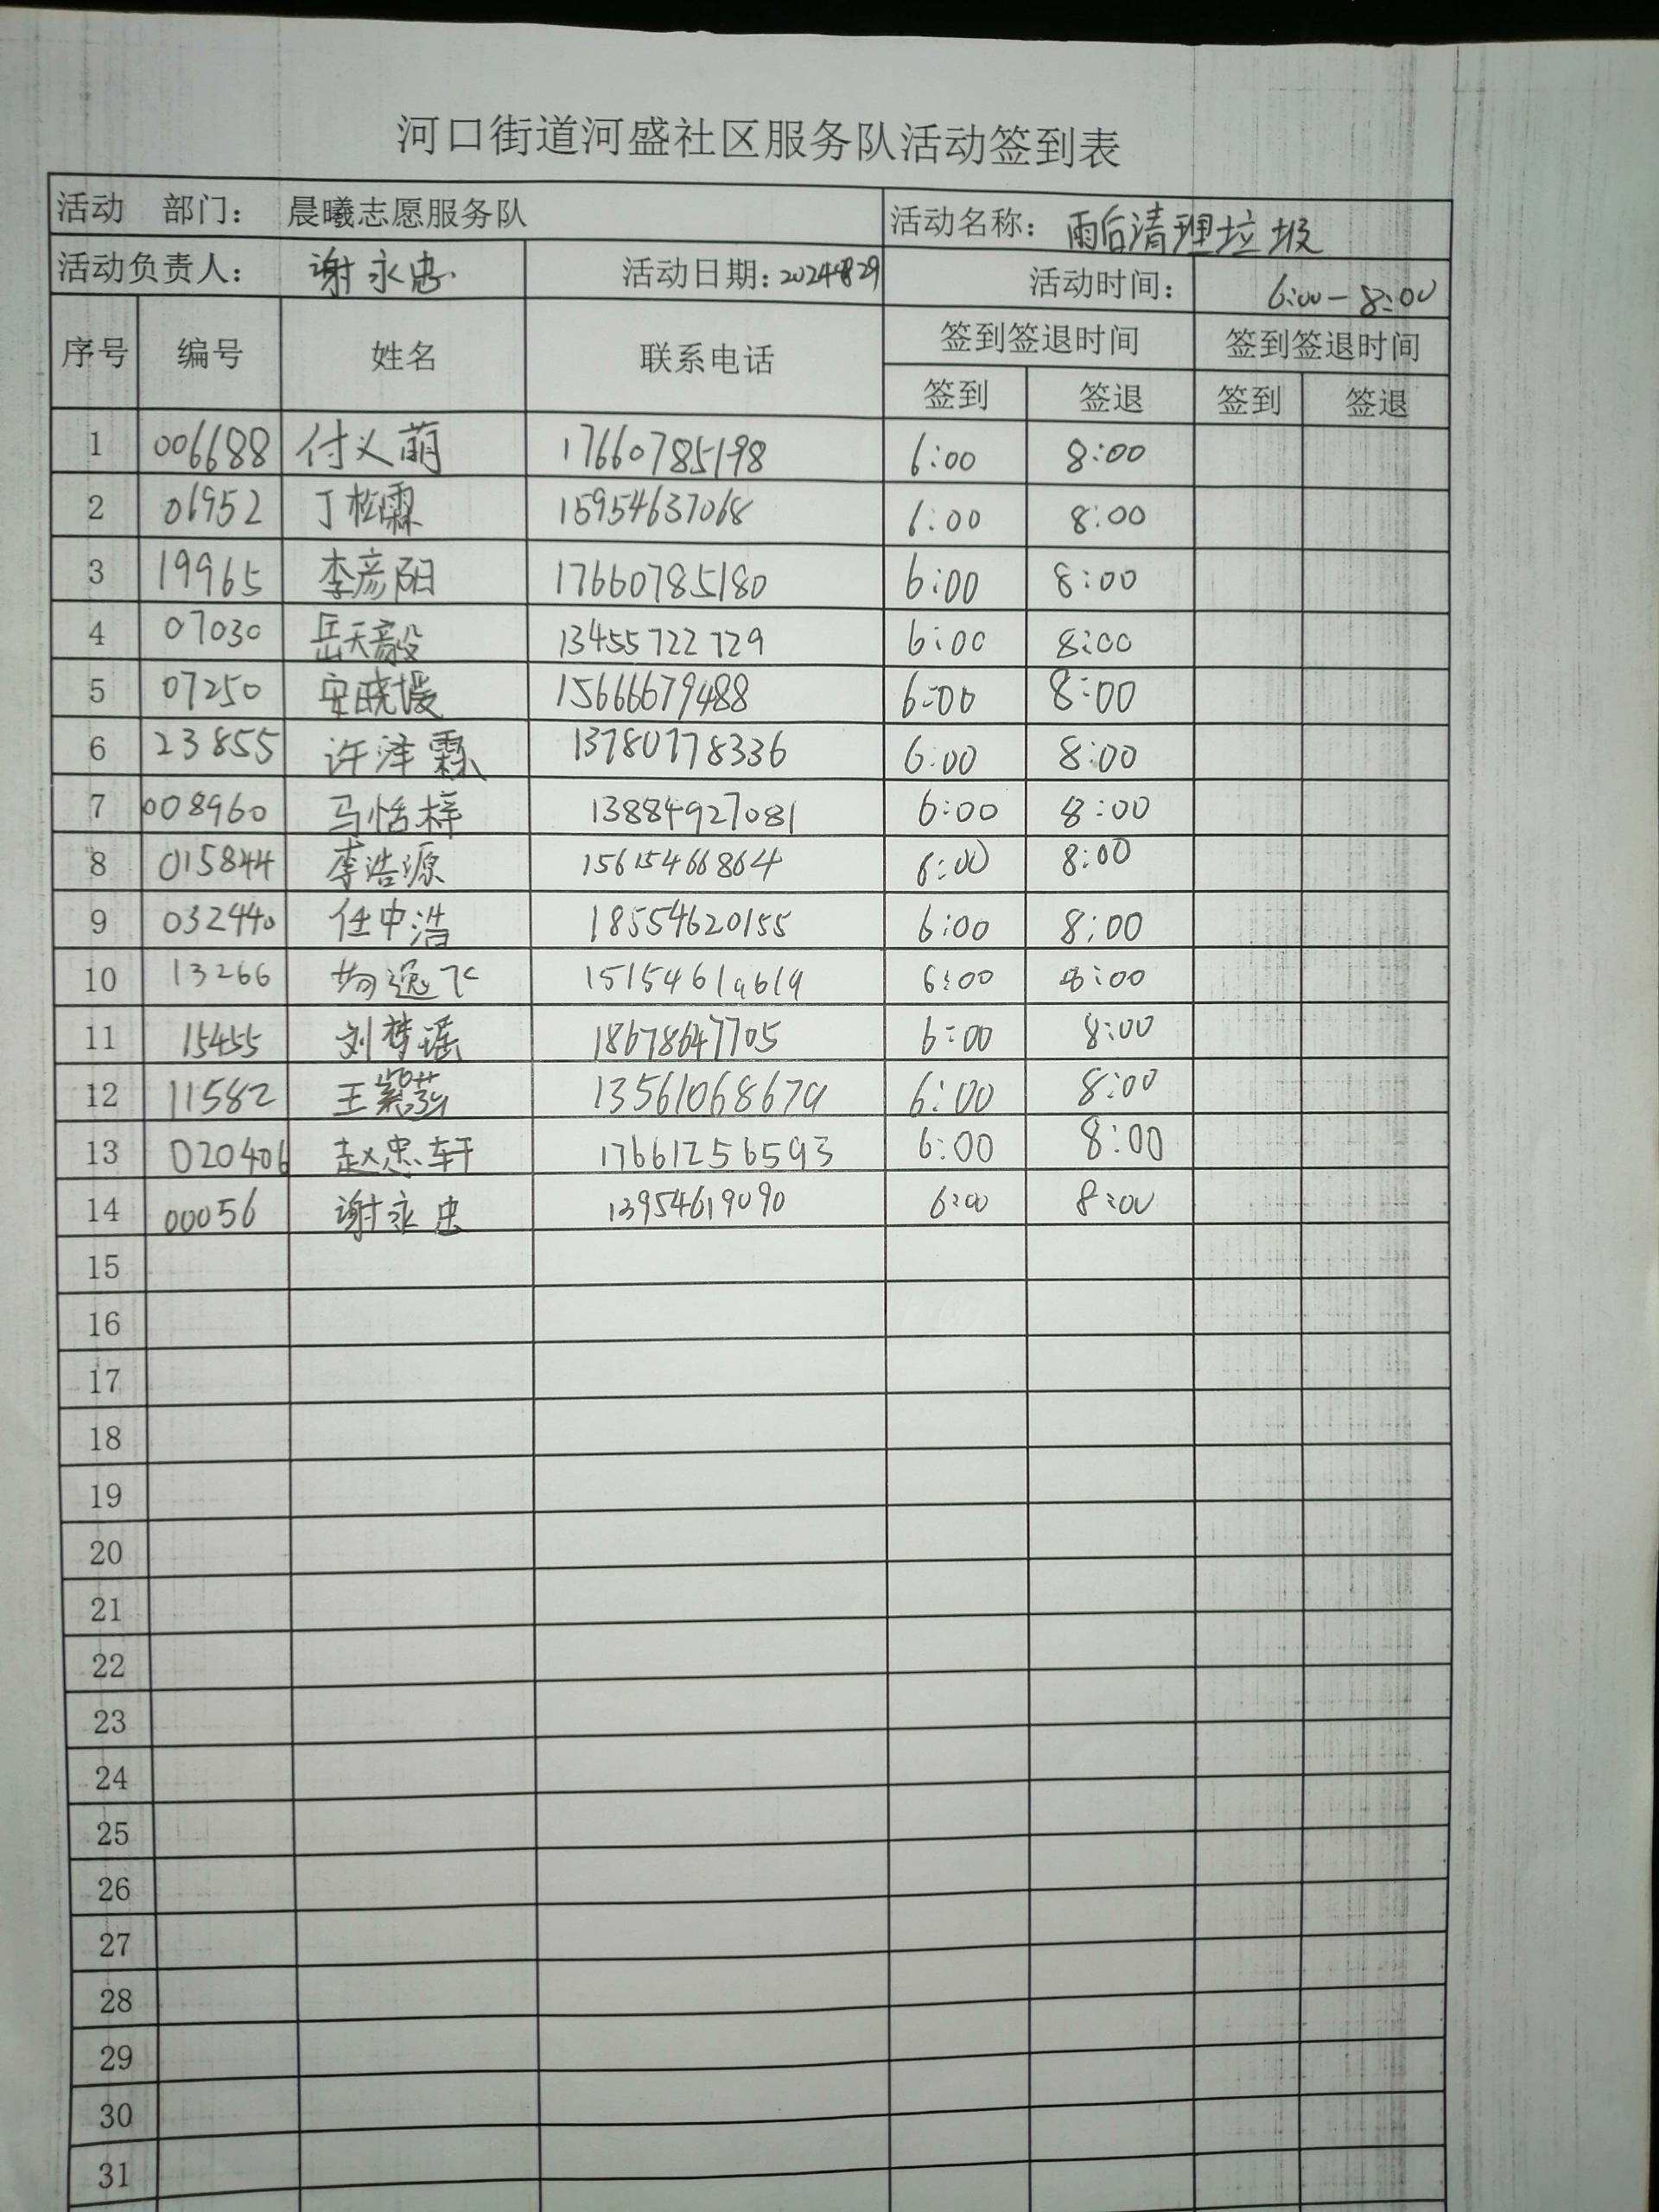 河口街道河盛社区服务队活动签到表
活动 部门： 晨曦志愿服务队 活动名称： 雨后清理垃圾
活动负责人： 谢永忠 活动日期：2024829 活动时间： 6:00-8:00
序号 编号 姓名 联系电话 签到签退时间 签到签退时间
签到 签退 签到 签退
1 006688 付义萌 17660785198 6:00 8:00
2 06952 丁松霖 15954637068 6:00 8:00
3 19965 李彦阳 17660785180 6:00 8:00
4 07030 岳天毅 13455722729 6:00 8:00
5 07250 安晓媛 15666679488 6:00 8:00
6 23855 许泽霖 13780778336 6:00 8:00
7 008960 马恬梓 13884927081 6:00 8:00
8 015844 李浩源 15615466864 6:00 8:00
9 032440 任中浩 18554620155 6:00 8:00
10 13266 逸飞 15154619619 6:00 8:00
11 15455 刘梦瑶 18678647705 6:00 8:00
12 11582 王紫 13561068679 6:00 8:00
13 020406 赵忠轩 17661256593 6:00 8:00
14 00056 谢永忠 13954619090 6:00 8:00
15
16
17
18
19
20
21
22
23
24
25
26
27
28
29
30
31